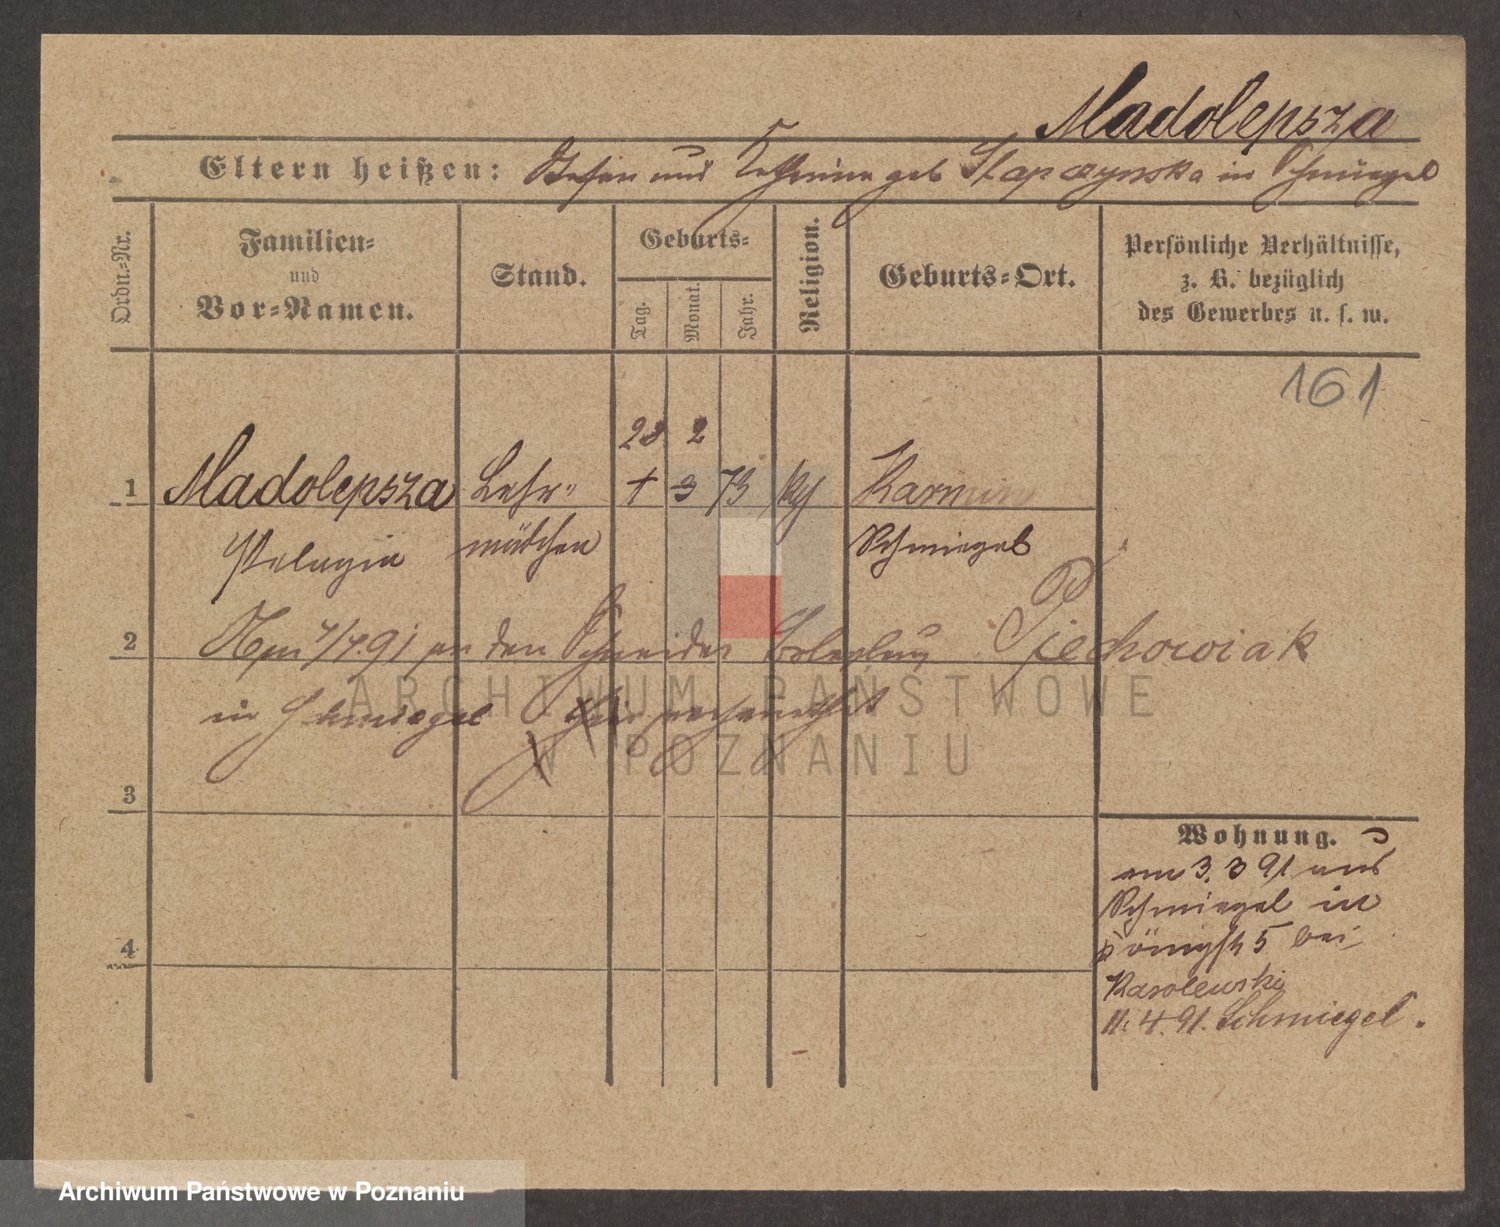 Madolepsza
Eltern heißen: Stefan und Katharina geb Slapczynska in Schmiegel
Ordn.-Nr.
Familien-
und
Vor-Namen.
Stand.
Geburts-
Tag.
Monat.
Jahr.
Religion.
Geburts-Ort.
Persönliche Verhältnisse,
z. B. bezüglich
des Gewerbes u. s. w.
161
28 2
1 Madolepsza Lehr- 3 73 Karmin
Pelagia mädchen Schmiegel
2 7/7.91 an den Schneider Boleslaus Piechowiak
in Schmiegel
3
4
Wohnung.
am 3. 3 91 aus
Schmiegel in
5 bei
Karolewski
11. 4. 91. Schmiegel.
ARCHIWUM PAŃSTWOWE
W POZNANIU
Archiwum Państwowe w Poznaniu